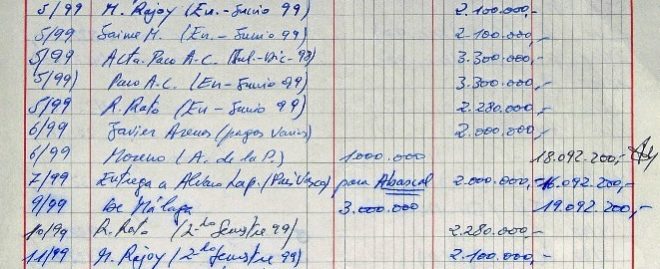 5/99 M. Rajoy (En.-Junio 99) 2.100.000,-
5/99 Jaime M. (En.-Junio 99) 2.100.000,-
5/99 Acta. Paco A.C. (Jul-Dic-98) 3.300.000,-
5/99) Paco A.C. (En-Junio 99) 3.300.000,-
5/99 R. Rato (En-Junio 99) 2.280.000,-
6/99 Javier Arenas (pagos varios) 2.000.000,-
6/99 Moreno (A. de la P.) 1.000.000 18.092.200,-
7/99 Entrega a Alvaro Lap. (País Vasco) para Abascal 2.000.000,- 16.092.200,-
9/99 de Málaga 3.000.000 19.092.200,-
10/99 R. Rato (2º Semestre 99) 2.280.000,-
11/99 M. Rajoy (2º Semestre 99) 2.100.000,-